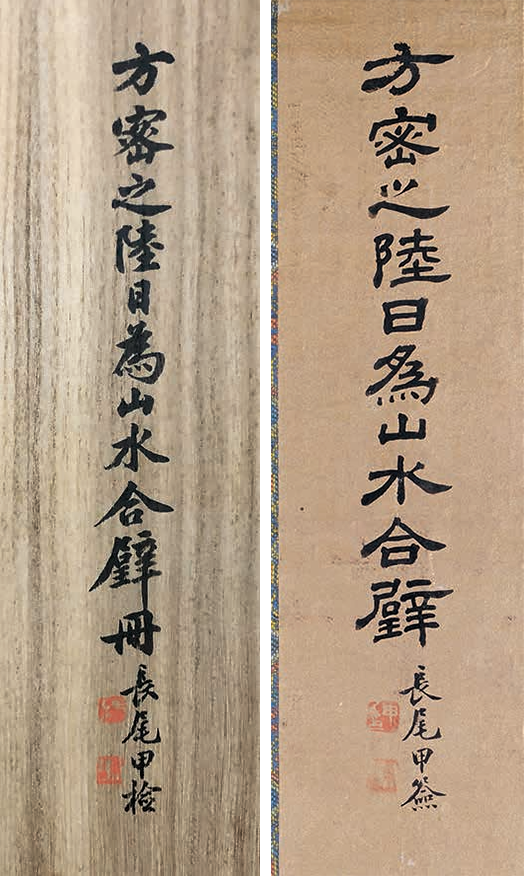 方密之陸日為山水合璧冊
長尾甲檢
方密之陸日為山水合璧
長尾甲簽